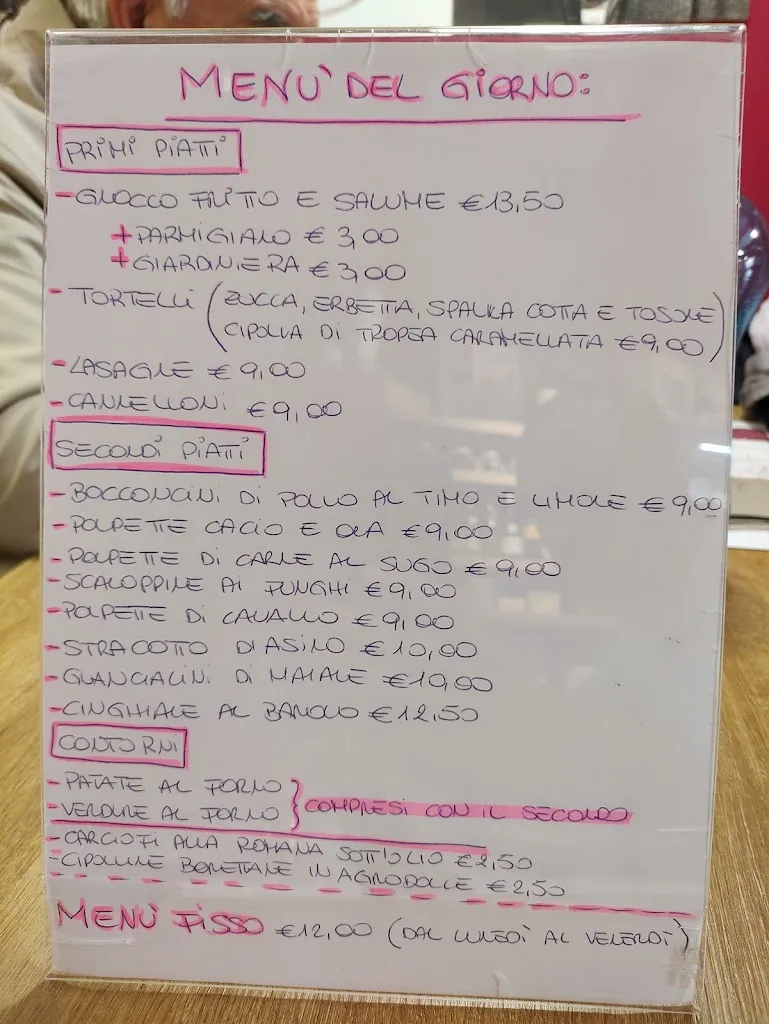 MENU' DEL GIORNO:
PRIMI PIATTI
- GNOCCO FRITTO E SALUME €13,50
+ PARMIGIANO € 3,00
+ GIARDINIERA € 3,00
- TORTELLI (ZUCCA, ERBETTA, SPALLA COTTA E TOSONE
CIPOLLA DI TROPEA CARAMELLATA €9,00)
- LASAGNE € 9,00
- CANNELLONI €9,00
SECONDI PIATTI
- BOCCONCINI DI POLLO AL TIMO E LIMONE € 9,00
- POLPETTE CACIO E OVA €9,00
- POLPETTE DI CARNE AL SUGO € 9,00
- SCALOPPINE AI FUNGHI € 9,00
- POLPETTE DI CAVALLO € 9,00
- STRACOTTO D'ASINO €10,00
- GUANCIALINI DI MAIALE €10,00
- CINGHIALE AL BAROLO €12,50
CONTORNI
- PATATE AL FORNO
- VERDURE AL FORNO } COMPRESI CON IL SECONDO
- CARCIOFI ALLA ROMANA SOTT'OLIO €2,50
- CIPOLLINE BORETTANE IN AGRODOLCE €2,50
MENÙ FISSO €12,00 (DAL LUNEDÌ AL VENERDÌ)